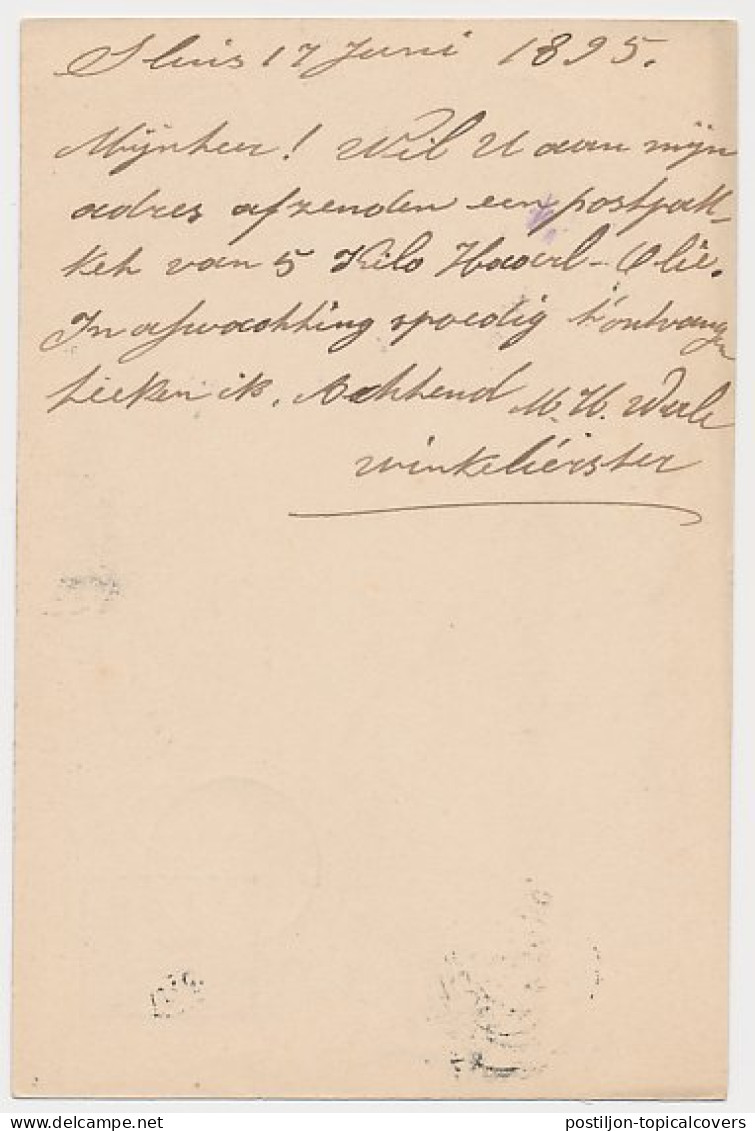 Sluis 17 Juni 1895.
Mijnheer! Wil U aan mijn
adres afzenden een postpak-
ket van 5 Kilo Haarl-Olie.
In afwachting spoedig t'ontvangen
teeken ik, Achtend M. H.
winkelierster
postiljon-topicalcovers